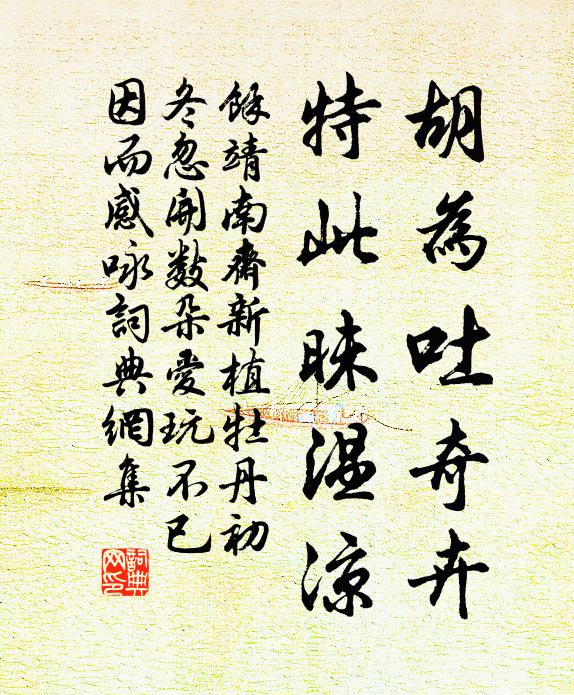 胡為吐奇卉
特此昧温凉
餘靖南齋新植牡丹初
冬忽開數朵愛玩不已
因而感咏詞典網集
詞典
网印